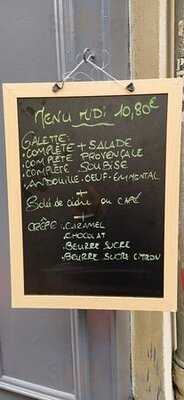 MENU MIDI 10,80€
GALETTE:
. COMPLÈTE + SALADE
. COMPLÈTE PROVENÇALE
. COMPLÈTE SOUBISE
. ANDOUILLE-OEUF-EMMENTAL
+
Bolée de cidre ou CAFÉ
+
CRÊPE : . CARAMEL
. CHOCOLAT
. BEURRE SUCRE
. BEURRE SUCRE CITRON